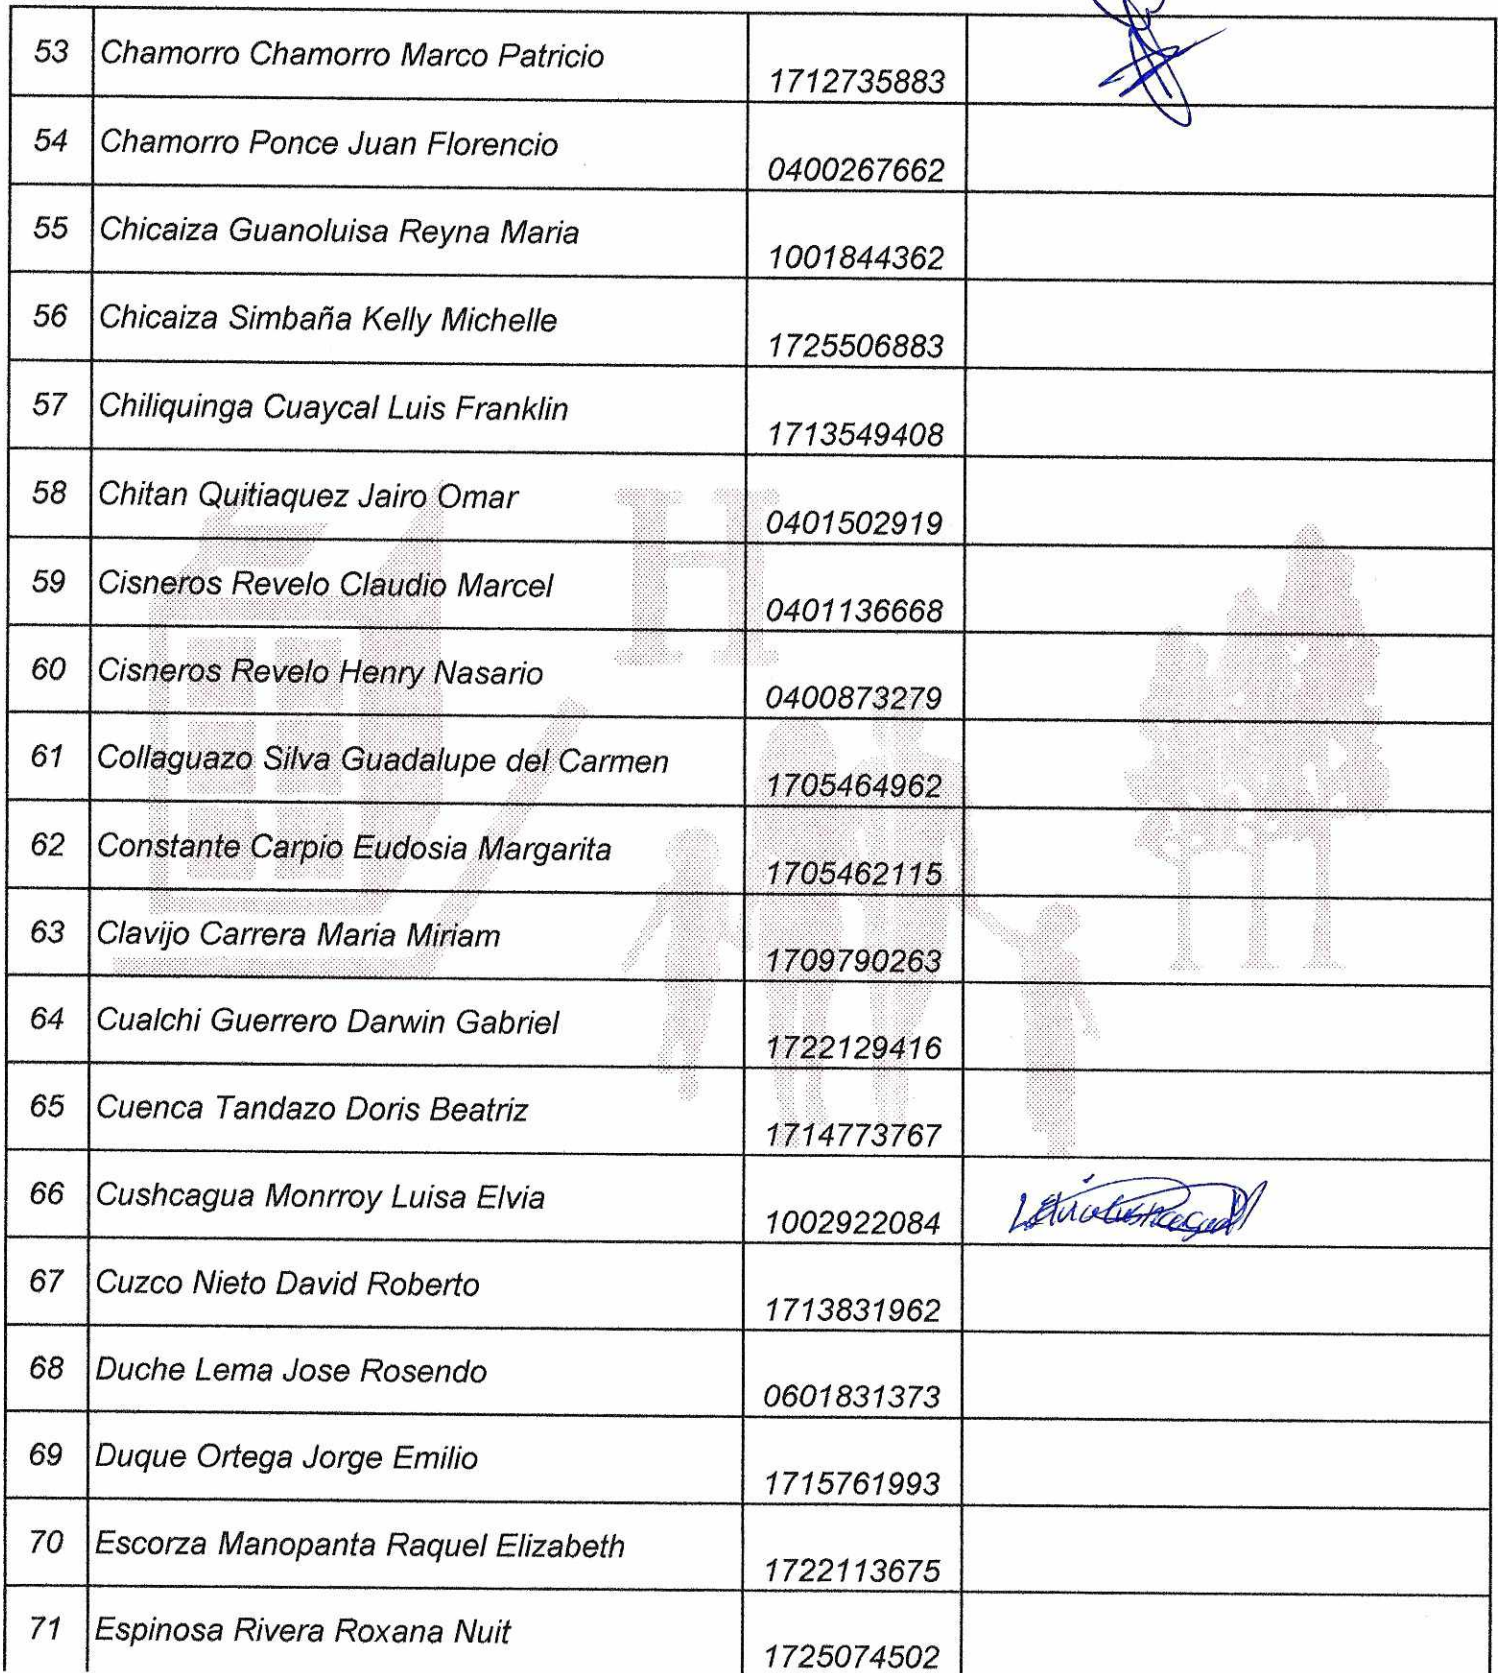 53 Chamorro Chamorro Marco Patricio 1712735883
54 Chamorro Ponce Juan Florencio 0400267662
55 Chicaiza Guanoluisa Reyna Maria 1001844362
56 Chicaiza Simbaña Kelly Michelle 1725506883
57 Chiliquinga Cuaycal Luis Franklin 1713549408
58 Chitan Quitiaquez Jairo Omar 0401502919
H
59 Cisneros Revelo Claudio Marcel 0401136668
60 Cisneros Revelo Henry Nasario 0400873279
61 Collaguazo Silva Guadalupe del Carmen 1705464962
62 Constante Carpio Eudosia Margarita 1705462115
63 Clavijo Carrera Maria Miriam 1709790263
64 Cualchi Guerrero Darwin Gabriel 1722129416
65 Cuenca Tandazo Doris Beatriz 1714773767
66 Cushcagua Monrroy Luisa Elvia 1002922084
67 Cuzco Nieto David Roberto 1713831962
68 Duche Lema Jose Rosendo 0601831373
69 Duque Ortega Jorge Emilio 1715761993
70 Escorza Manopanta Raquel Elizabeth 1722113675
71 Espinosa Rivera Roxana Nuit 1725074502